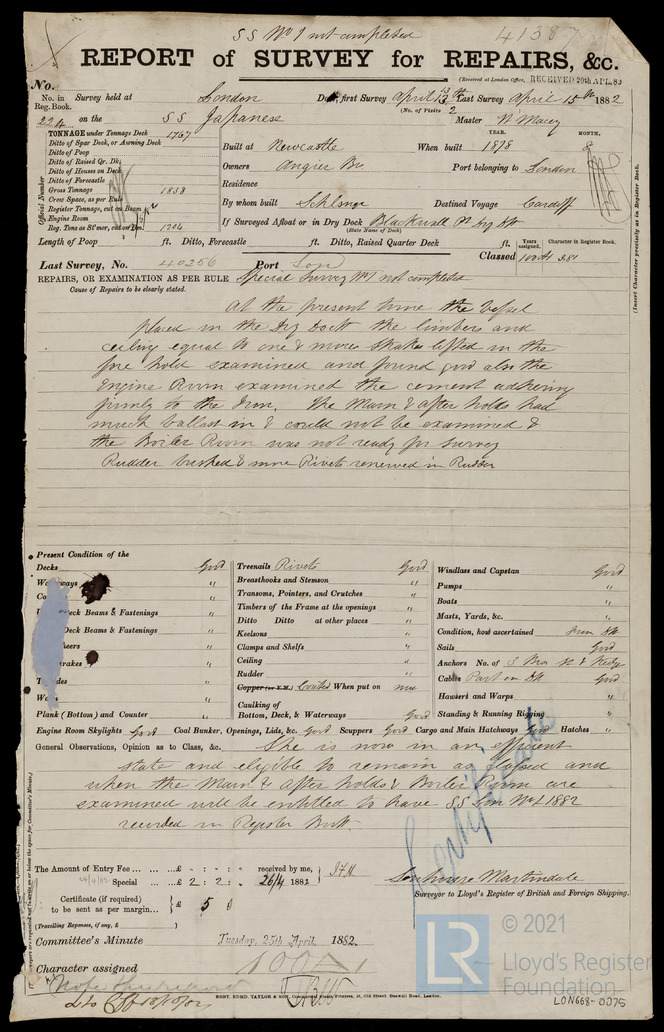 SS No 1 not completed
REPORT of SURVEY for REPAIRS, &c.
(Received at London Office, RECEIVED 20th APL. 82
No.
No. in Reg. Book. Survey held at London Date, first Survey April 13th Last Survey April 15th 1882
(No. of Visits 2
224 on the SS Japanese Master W Macey
TONNAGE under Tonnage Deck 1767
Ditto of Spar Deck, or Awning Deck
Ditto of Poop
Ditto of Raised Qr. Dk.
Ditto of Houses on Deck
Ditto of Forecastle
Gross Tonnage 1883
Crew Space, as per Rule
Register Tonnage, cut on Beam
Engine Room
Reg. Tons as St'mer, cut on Bm. 1204
Official Number
YEAR. MONTH.
Built at Newcastle When built 1878 8
Owners Angier Bros Port belonging to London
Residence
By whom built Schlesinger Destined Voyage Cardiff
If Surveyed Afloat or in Dry Dock Blackwall Pt Dry Dk
(State Name of Dock)
Length of Poop ft. Ditto, Forecastle ft. Ditto, Raised Quarter Deck ft.
Years assigned. Character in Register Book.
Classed 100A1 3,81
(Insert Character precisely as in Register Book.
Last Survey, No. 40256 Port Lon
REPAIRS, OR EXAMINATION AS PER RULE Special Survey No 1 not completed
Cause of Repairs to be clearly stated.
At the present time the Vessel
placed in the Dry Dock the limbers and
ceiling equal to one & more Strakes lifted in the
fore hold examined and found good also the
Engine Room examined the cement adhering
firmly to the Iron. The Main & after holds had
much ballast in & could not be examined &
the Boiler Room was not ready for survey
Rudder bushed & some Rivets renewed in Rudder
Present Condition of the
Decks Good
Deck Beams & Fastenings "
Deck Beams & Fastenings "
Plank (Bottom) and Counter "
Treenails Rivets Good
Breasthooks and Stemson "
Transoms, Pointers, and Crutches "
Timbers of the Frame at the openings "
Ditto Ditto at other places "
Keelsons "
Clamps and Shelfs "
Ceiling "
Rudder "
Copper (or Y.M.) Coated When put on now
Caulking of
Bottom, Deck, & Waterways Good
Windlass and Capstan Good
Pumps "
Boats "
Masts, Yards, &c. "
Condition, how ascertained from Dk
Sails Good
Anchors No. of 3 Mrs St & Kedge
Cables Part on Dk Good
Hawsers and Warps "
Standing & Running Rigging "
Engine Room Skylights Good Coal Bunker, Openings, Lids, &c. Good Scuppers Good Cargo and Main Hatchways Good Hatches "
General Observations, Opinion as to Class, &c. She is now in an efficient
state and eligible to remain as classed and
when the Main & After holds & Boiler Room are
examined will be entitled to have SS Lon No 1 1882
recorded in Register Book.
The Amount of Entry Fee ... £ : : received by me,
Special ... £ 2 : 2 : 26/4 1882
Certificate (if required) to be sent as per margin... £ 5 0
(Travelling Expenses, if any, £ )
Senhouse Martindale
Surveyor to Lloyd's Register of British and Foreign Shipping.
Committee's Minute Tuesday, 25th April 1882.
Character assigned 100A1
ROBT. EDMD. TAYLOR & SON, Commercial Steam Printers, 19, Old Street, Goswell Road, London.
LR
© 2021
Lloyd's Register
Foundation
LON668-0075